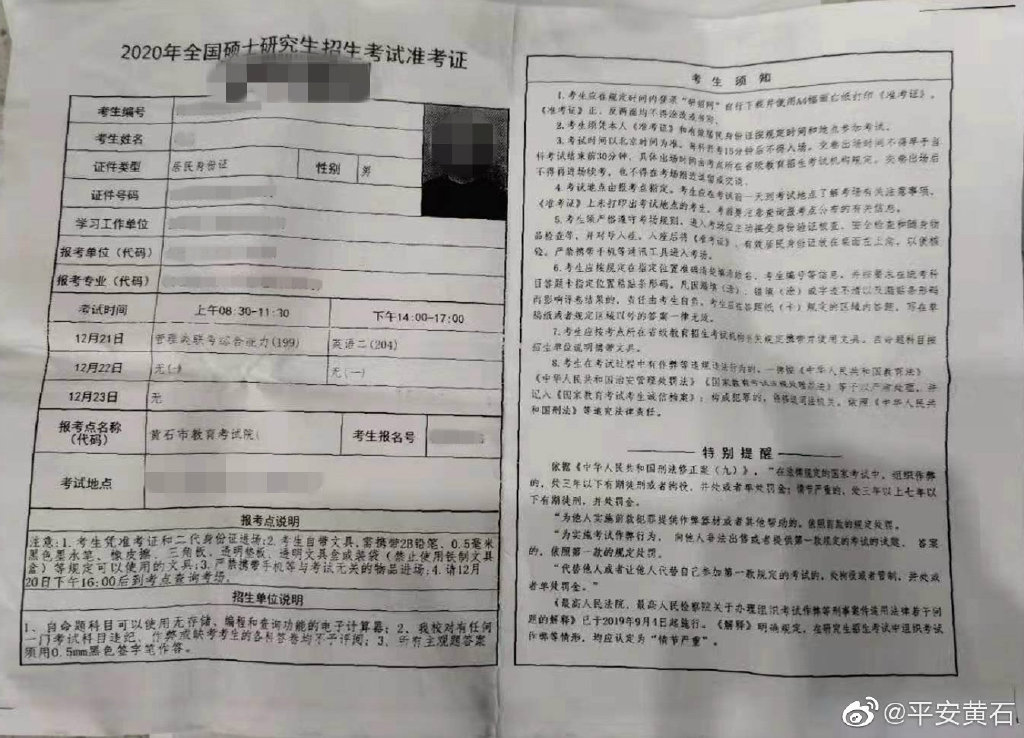 2020年全国硕士研究生招生考试准考证
考生编号
考生姓名
证件类型 居民身份证 性别 男
证件号码
学习工作单位
报考单位（代码）
报考专业（代码）
考试时间 上午08:30-11:30 下午14:00-17:00
12月21日 管理类联考综合能力(199) 英语二(204)
12月22日 无(一) 无(一)
12月23日 无
报考点名称
（代码） 黄石市教育考试院( 考生报名号
考试地点
报考点说明
注意:1.考生凭准考证和二代身份证进场;2.考生自带文具,需携带2B铅笔、0.5毫米
黑色墨水笔、橡皮擦、三角板、透明垫板、透明文具盒或袋装（禁止使用铁制文具
盒）等规定可以使用的文具;3.严禁携带手机等与考试无关的物品进场;4.请12月
20日下午16:00后到考点查询考场。
招生单位说明
1、自命题科目可以使用无存储、编程和查询功能的电子计算器；2、我校对有任何
一门考试科目违纪、作弊或缺考考生的各科答卷均不予评阅；3、所有主观题答案
须用0.5mm黑色签字笔作答。
考生须知
1.考生应在规定时间内登录“研招网”自行下载并使用A4幅面白纸打印《准考证》，
《准考证》正、反两面均不得涂改或书写。
2.考生须凭本人《准考证》和有效居民身份证按规定时间和地点参加考试。
3.考试时间以北京时间为准。每科开考15分钟后不得入场。交卷出场时间不得早于当
科考试结束前30分钟，具体出场时间由考点所在省级教育招生考试机构规定。交卷出场后
不得再进场续考，也不得在考场附近逗留或交谈。
4.考试地点由报考点指定。考生应在考试前一天到考试地点了解考场有关注意事项。
《准考证》上未打印出考试地点的考生，考前要注意查询报考点公布的有关信息。
5.考生须严格遵守考场规则，进入考场应主动接受身份验证核查、安全检查和随身物
品检查等，并对号入座。入座后将《准考证》、有效居民身份证放在桌面左上角，以便核
验。严禁携带手机等通讯工具进入考场。
6.考生应按规定在指定位置准确清楚填涂姓名、考生编号等信息，并按要求在统考科
目答题卡指定位置粘贴条形码。凡因漏填（涂）、错填（涂）或字迹不清以及漏贴条形码
而影响评卷结果的，责任由考生自负。考生应在答题纸（卡）规定的区域内答题，写在草
稿纸或者规定区域以外的答案一律无效。
7.考生应按考点所在省级教育招生考试机构有关规定携带并使用文具。自命题科目按
招生单位说明携带文具。
8.考生在考试过程中有作弊等违规违法行为的，一律按《中华人民共和国教育法》
《中华人民共和国治安管理处罚法》《国家教育考试违规处理办法》等予以严肃处理，并
记入《国家教育考试考生诚信档案》；构成犯罪的，将移送司法机关，依照《中华人民共
和国刑法》等追究法律责任。
特别提醒
依据《中华人民共和国刑法修正案（九）》，“在法律规定的国家考试中，组织作弊
的，处三年以下有期徒刑或者拘役，并处或者单处罚金；情节严重的，处三年以上七年以
下有期徒刑，并处罚金。
“为他人实施前款犯罪提供作弊器材或者其他帮助的，依照前款的规定处罚。
“为实施考试作弊行为，向他人非法出售或者提供第一款规定的考试的试题、答案
的，依照第一款的规定处罚。
“代替他人或者让他人代替自己参加第一款规定的考试的，处拘役或者管制，并处或
者单处罚金。”
《最高人民法院、最高人民检察院关于办理组织考试作弊等刑事案件适用法律若干问
题的解释》已于2019年9月4日起施行。《解释》明确规定，在研究生招生考试中组织考试
作弊等情形，均应认定为“情节严重”。
@平安黄石